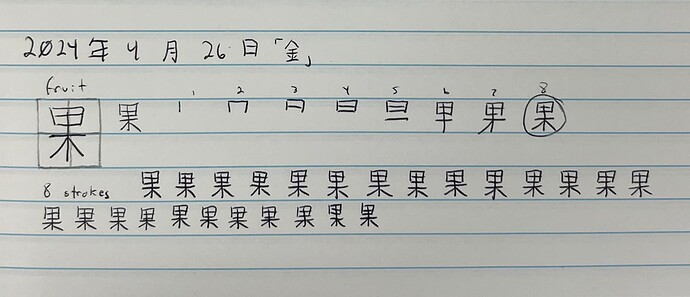 2024年4月26日「金」
fruit 1 2 3 4 5 6 7 8
果 果 果
8 strokes 果 果 果 果 果 果 果 果 果 果 果 果 果 果
果 果 果 果 果 果 果 果 果 果 果